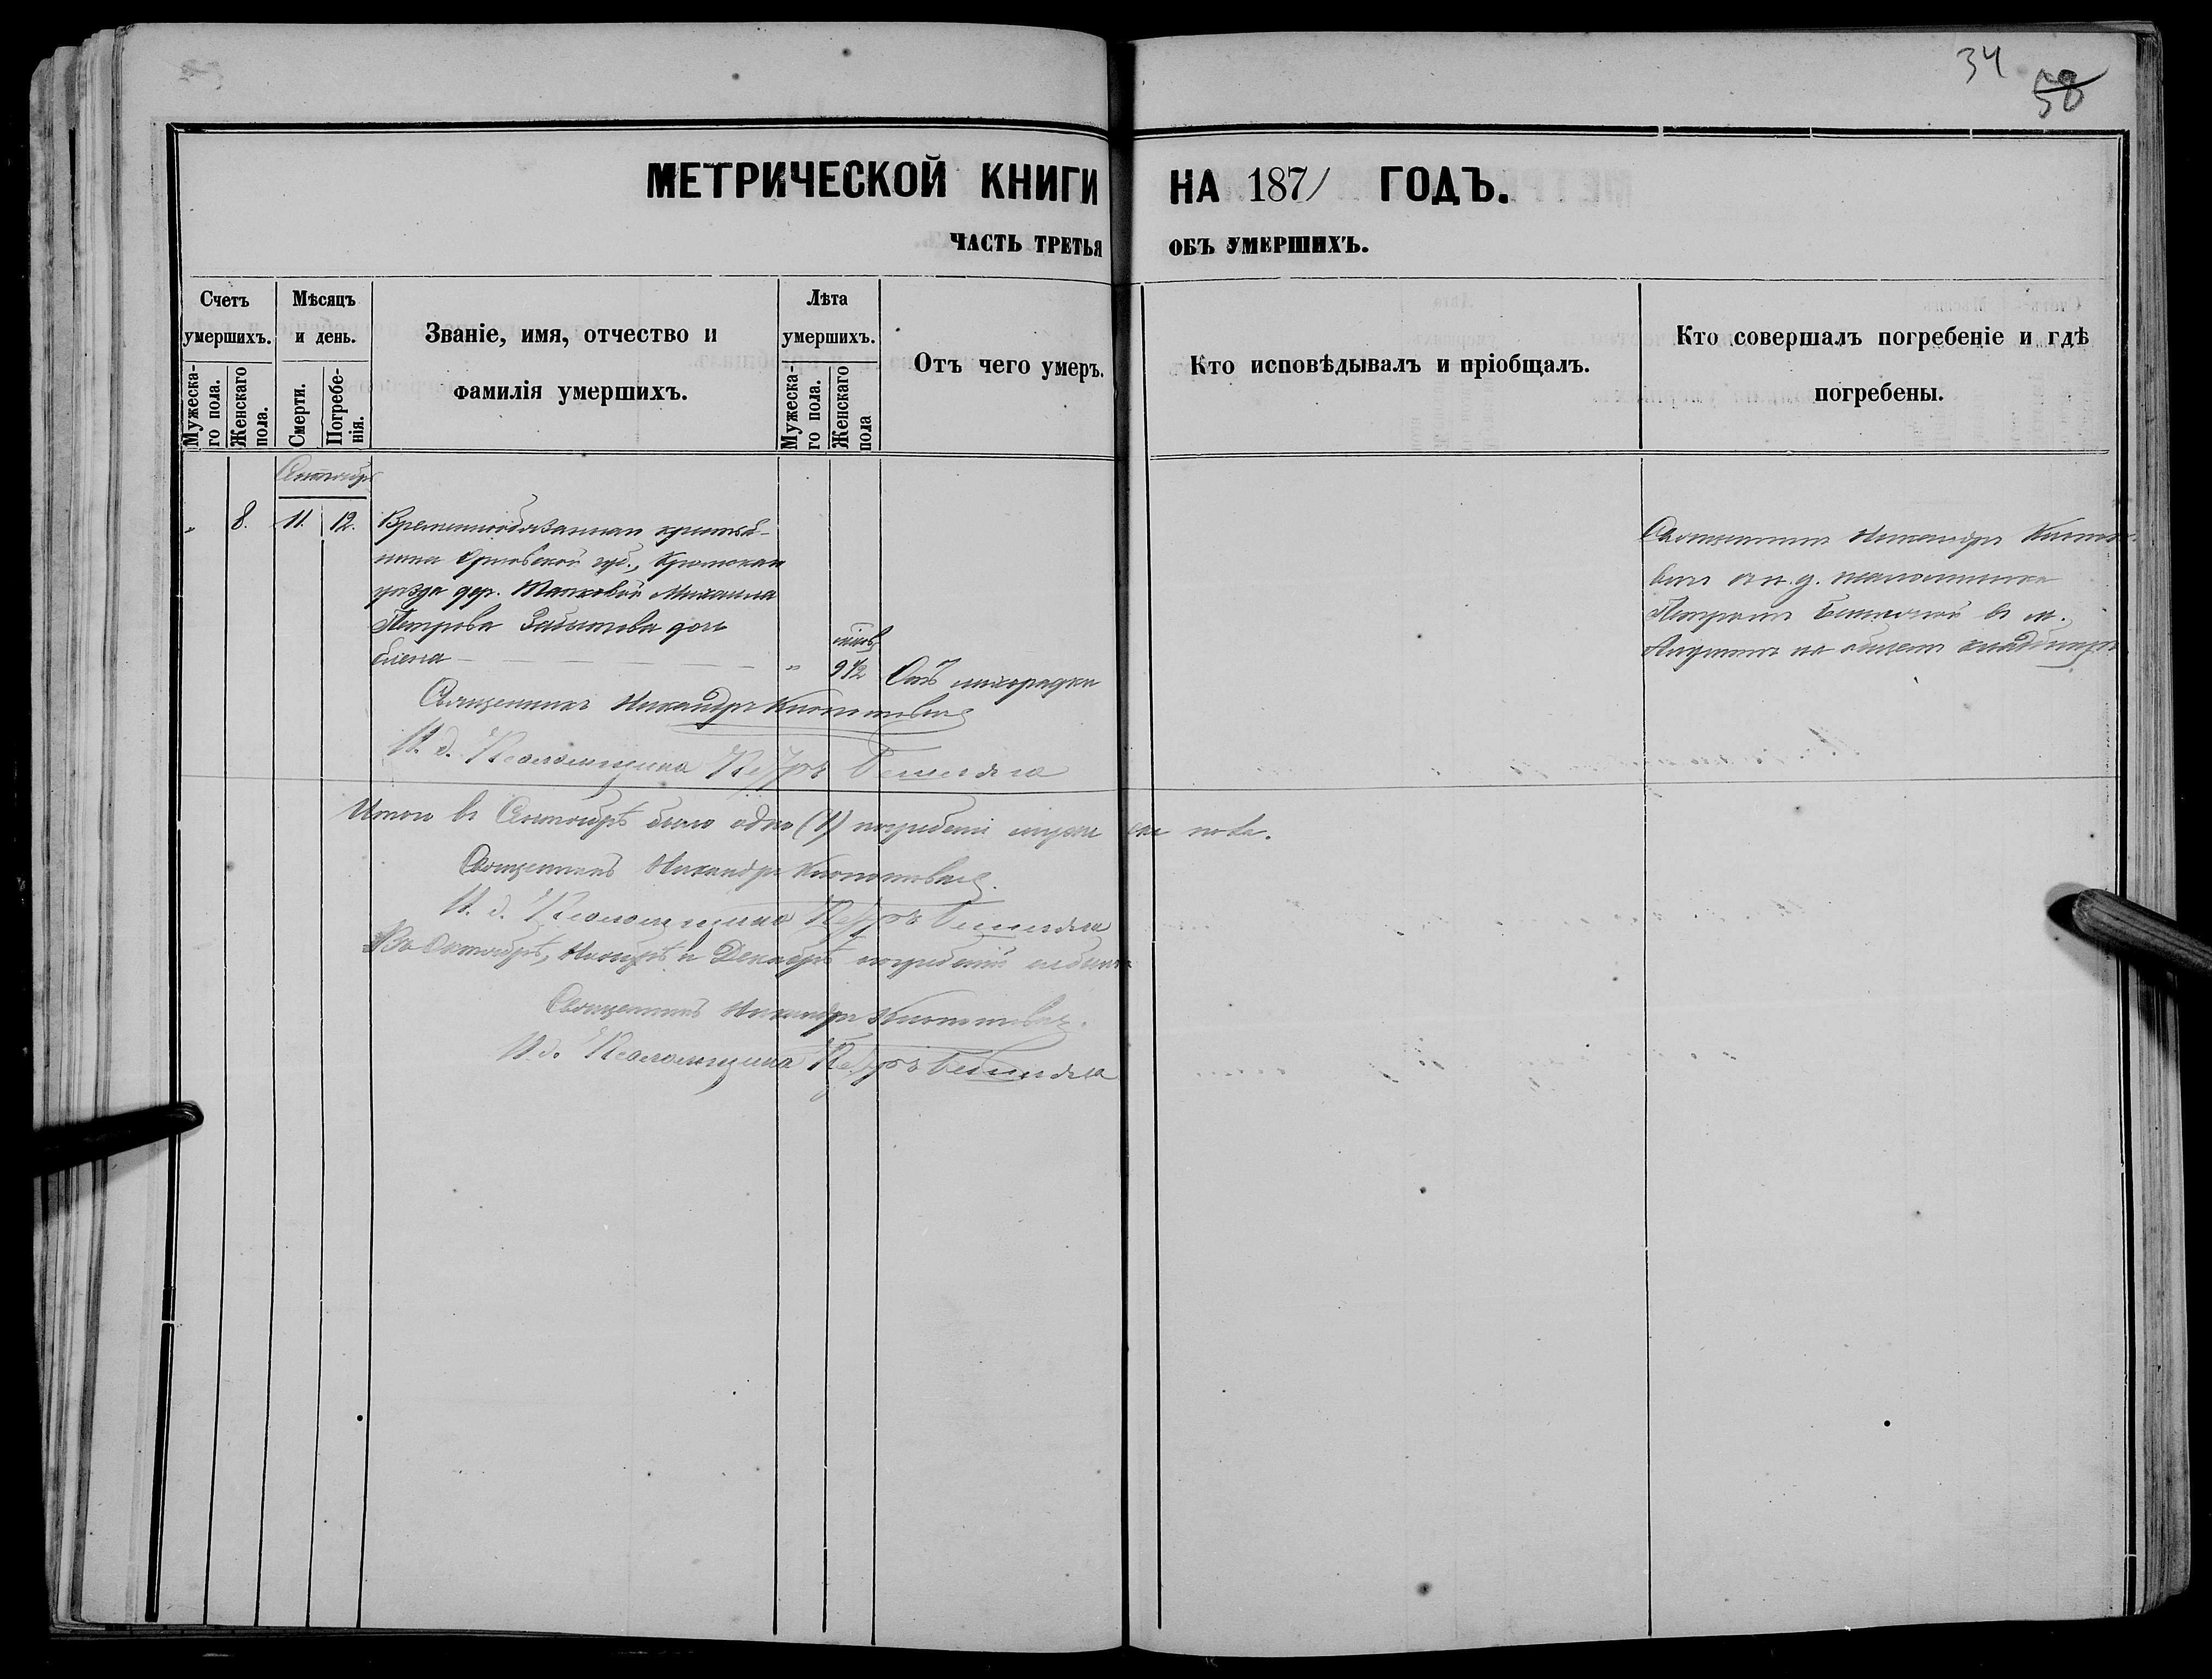 34
58
МЕТРИЧЕСКОЙ КНИГИ НА 1871 ГОДЪ.
ЧАСТЬ ТРЕТЬЯ ОБЪ УМЕРШИХЪ.
Счетъ умершихъ.
Мужескаго пола.
Женскаго пола.
Мѣсяцъ и день.
Смерти.
Погребенія.
Званіе, имя, отчество и
фамилія умершихъ.
Лѣта умершихъ.
Мужескаго пола.
Женскаго пола
Отъ чего умеръ.
Кто исповѣдывалъ и пріобщалъ.
Кто совершалъ погребеніе и гдѣ
погребены.
Сентябрь
„ 8. 11. 12. Временнообязаннаго крестья-
нина Орловской губ.,
уѣзда дер. Михаила
Петрова дочь
Елена „ 9 1/2 Отъ лихорадки
Священникъ Никандръ
И. д. Псаломщика Петръ
Священникъ Никандръ
и и. д. псаломщика
Петръ въ м.
на общемъ кладбищѣ
Итого въ Сентябрѣ было одно (1) погребеніе женскаго пола.
Священникъ Никандръ
И. д. Псаломщика Петръ
Въ Октябрѣ, Ноябрѣ и Декабрѣ погребеній не было
Священникъ Никандръ
И. д. Псаломщика Петръ